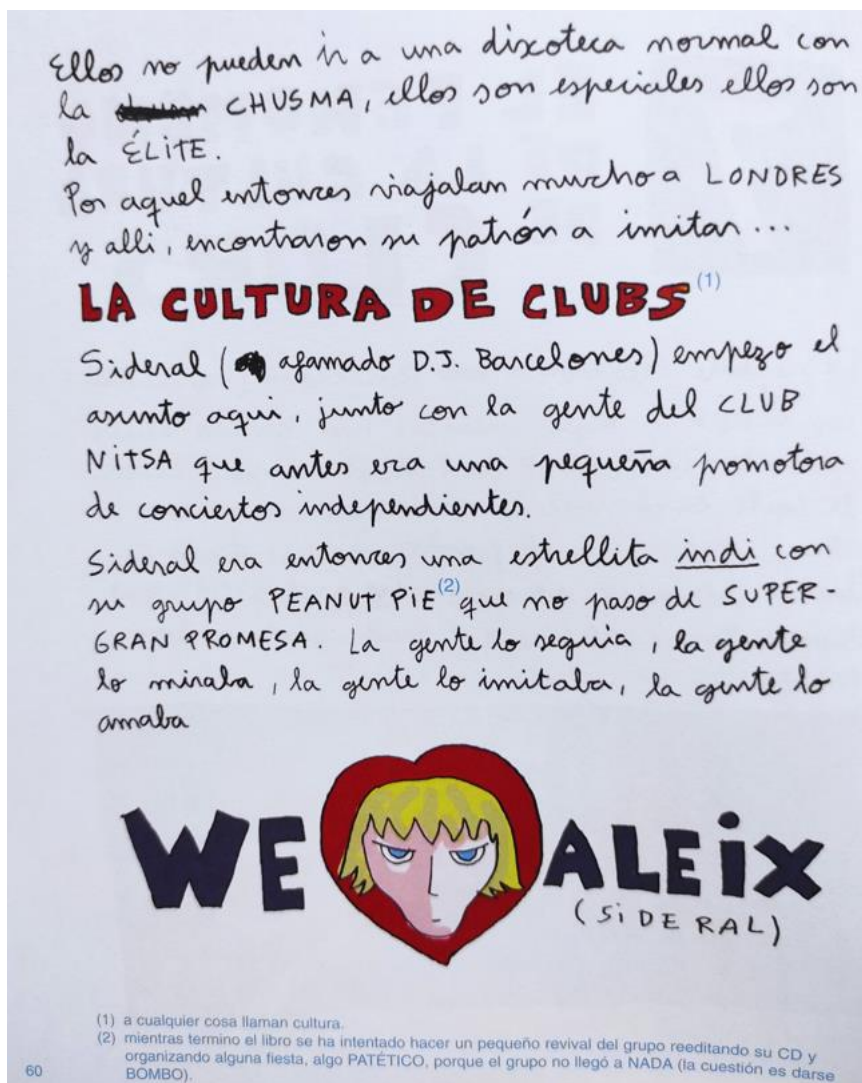 Ellos no pueden ir a una dixoteca normal con
la CHUSMA, ellos son especiales ellos son
la ÉLITE.
Por aquel entonces viajaban mucho a LONDRES
y alli, encontraron su patrón a imitar...
LA CULTURA DE CLUBS (1)
Sideral ( afamado D.J. Barcelones) empezo el
asunto aqui, junto con la gente del CLUB
NITSA que antes era una pequeña promotora
de conciertos independientes.
Sideral era entonces una estrellita indi con
su grupo PEANUT PIE (2) que no paso de SUPER-
GRAN PROMESA. La gente lo seguia, la gente
lo miraba, la gente lo imitaba, la gente lo
amaba
WE ALEIX
(SIDERAL)
(1) a cualquier cosa llaman cultura.
(2) mientras termino el libro se ha intentado hacer un pequeño revival del grupo reeditando su CD y
organizando alguna fiesta, algo PATÉTICO, porque el grupo no llegó a NADA (la cuestión es darse
BOMBO).
60